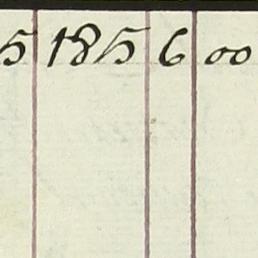 5 185 6 00